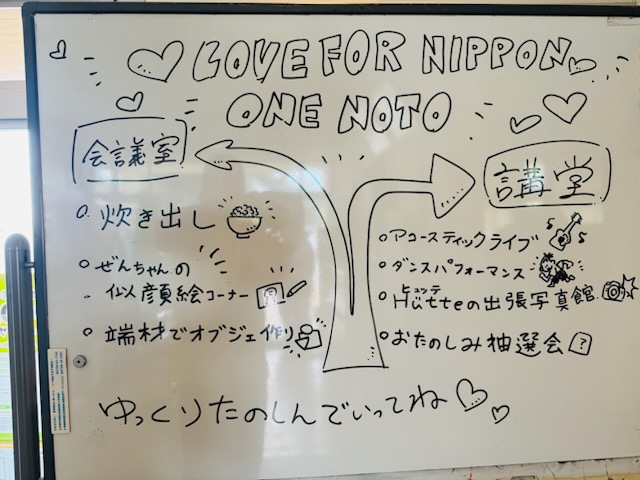 LOVE FOR NIPPON
ONE NOTO
会議室
炊き出し
ぜんちゃんの
似顔絵コーナー
端材でオブジェ作り
講堂
アコースティックライブ
ダンスパフォーマンス
ヒュッテ
Hütteの出張写真館
おたのしみ抽選会
?
ゆっくりたのしんでいってね